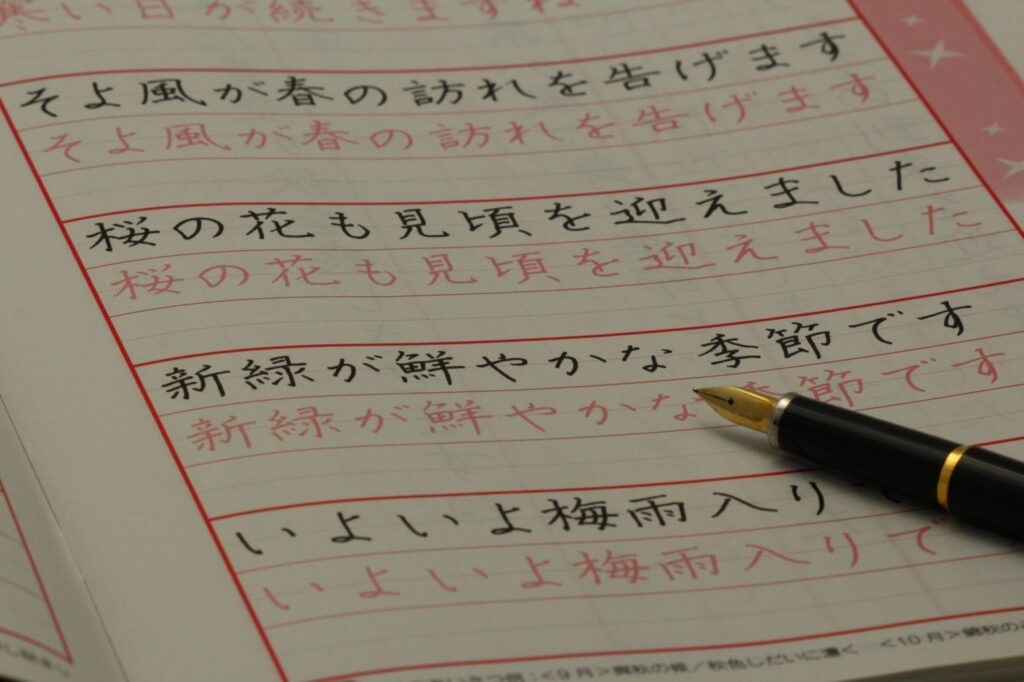 寒い日が続きますね
そよ風が春の訪れを告げます
そよ風が春の訪れを告げます
桜の花も見頃を迎えました
桜の花も見頃を迎えました
新緑が鮮やかな季節です
新緑が鮮やかな季節です
いよいよ梅雨入りで
いよいよ梅雨入りで
<9月>爽秋の候／秋色しだいに濃く <10月>錦秋の